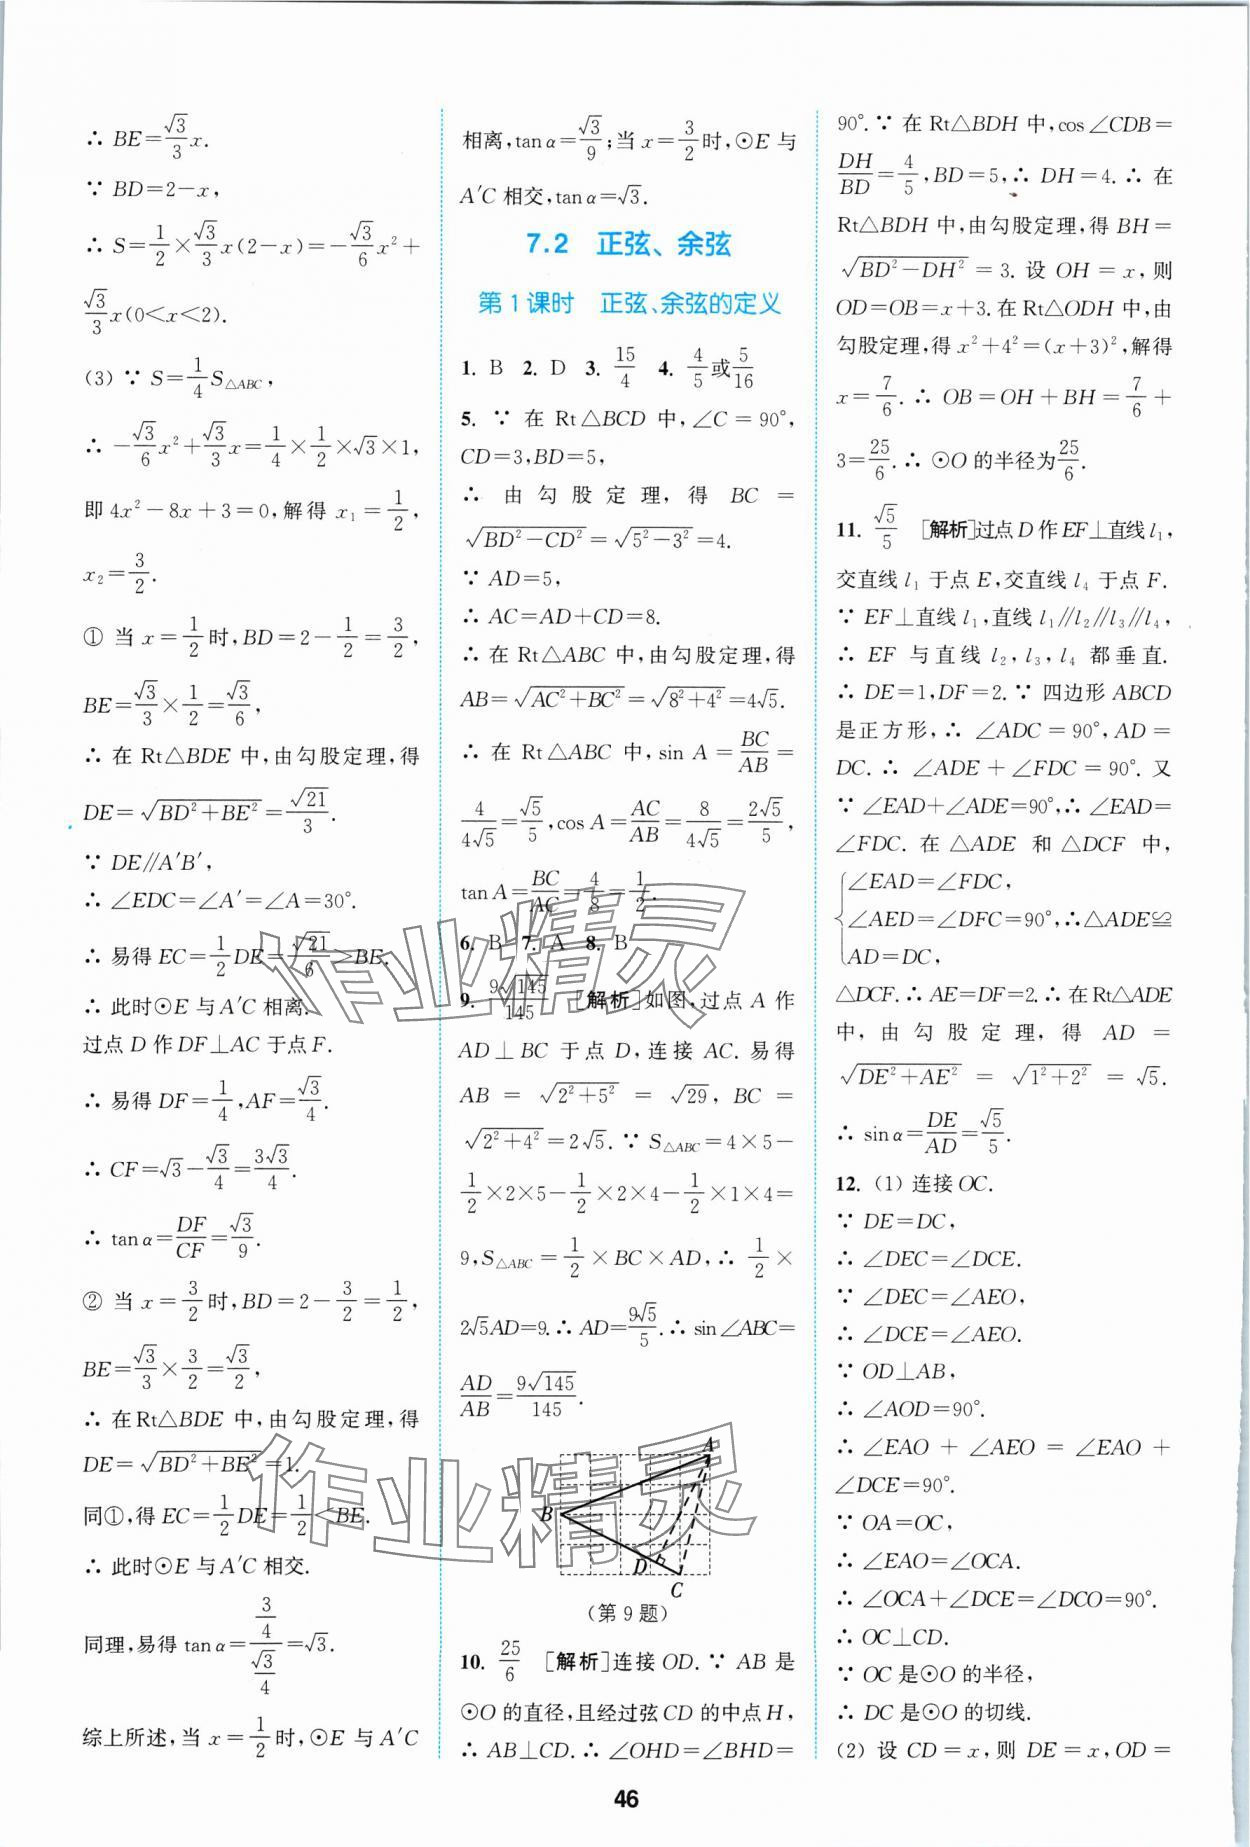 ∴ BE=√3/3 x.
∵ BD=2-x,
∴ S=1/2×√3/3 x(2-x)=-√3/6 x²+
√3/3 x(0<x<2).
(3) ∵ S=1/4 S△ABC,
∴ -√3/6 x²+√3/3 x=1/4×1/2×√3×1,
即 4x²-8x+3=0,解得 x₁=1/2,
x₂=3/2.
① 当 x=1/2时,BD=2-1/2=3/2,
BE=√3/3×1/2=√3/6,
∴ 在 Rt△BDE 中,由勾股定理,得
DE=√(BD²+BE²)=√21/3.
∵ DE∥A′B′,
∴ ∠EDC=∠A′=∠A=30°.
∴ 易得 EC=1/2 DE=√21/6>BE.
∴ 此时⊙E 与 A′C 相离.
过点 D 作 DF⊥AC 于点 F.
∴ 易得 DF=1/4,AF=√3/4.
∴ CF=√3-√3/4=3√3/4.
∴ tan α=DF/CF=√3/9.
② 当 x=3/2时,BD=2-3/2=1/2,
BE=√3/3×3/2=√3/2,
∴ 在 Rt△BDE 中,由勾股定理,得
DE=√(BD²+BE²)=1.
同①,得 EC=1/2 DE=1/2<BE.
∴ 此时⊙E 与 A′C 相交.
同理,易得 tan α=(3/4)/(√3/4)=√3.
综上所述,当 x=1/2时,⊙E 与 A′C
相离,tan α=√3/9;当 x=3/2时,⊙E 与
A′C 相交,tan α=√3.
7.2 正弦、余弦
第 1 课时 正弦、余弦的定义
1. B 2. D 3. 15/4 4. 4/5或5/16
5. ∵ 在 Rt△BCD 中,∠C=90°,
CD=3,BD=5,
∴ 由勾股定理,得 BC=
√(BD²-CD²)=√(5²-3²)=4.
∵ AD=5,
∴ AC=AD+CD=8.
∴ 在 Rt△ABC 中,由勾股定理,得
AB=√(AC²+BC²)=√(8²+4²)=4√5.
∴ 在 Rt△ABC 中,sin A=BC/AB=
4/4√5=√5/5,cos A=AC/AB=8/4√5=2√5/5,
tan A=BC/AC=4/8=1/2.
6. B 7. A 8. B
9. 9√145/145 [解析]如图,过点 A 作
AD⊥BC 于点 D,连接 AC. 易得
AB=√(2²+5²)=√29,BC=
√(2²+4²)=2√5. ∵ S△ABC=4×5-
1/2×2×5-1/2×2×4-1/2×1×4=
9,S△ABC=1/2×BC×AD,∴ 1/2×
2√5AD=9. ∴ AD=9√5/5. ∴ sin∠ABC=
AD/AB=9√145/145.
A
B
D
C
(第 9 题)
10. 25/6 [解析]连接 OD. ∵ AB 是
⊙O 的直径,且经过弦 CD 的中点 H,
∴ AB⊥CD. ∴ ∠OHD=∠BHD=
90°. ∵ 在 Rt△BDH 中,cos∠CDB=
DH/BD=4/5,BD=5,∴ DH=4. ∴ 在
Rt△BDH 中,由勾股定理,得 BH=
√(BD²-DH²)=3. 设 OH=x,则
OD=OB=x+3. 在 Rt△ODH 中,由
勾股定理,得 x²+4²=(x+3)²,解得
x=7/6. ∴ OB=OH+BH=7/6+
3=25/6. ∴ ⊙O 的半径为25/6.
11. √5/5 [解析]过点 D 作 EF⊥直线 l₁,
交直线 l₁ 于点 E,交直线 l₄ 于点 F.
∵ EF⊥直线 l₁,直线 l₁∥l₂∥l₃∥l₄,
∴ EF 与直线 l₂,l₃,l₄ 都垂直.
∴ DE=1,DF=2. ∵ 四边形 ABCD
是正方形,∴ ∠ADC=90°,AD=
DC. ∴ ∠ADE+∠FDC=90°. 又
∵ ∠EAD+∠ADE=90°,∴ ∠EAD=
∠FDC. 在 △ADE 和 △DCF 中,
∠EAD=∠FDC,
∠AED=∠DFC=90°,∴△ADE≌
AD=DC,
△DCF. ∴ AE=DF=2. ∴ 在 Rt△ADE
中,由勾股定理,得 AD=
√(DE²+AE²)=√(1²+2²)=√5.
∴ sin α=DE/AD=√5/5.
12. (1) 连接 OC.
∵ DE=DC,
∴ ∠DEC=∠DCE.
∵ ∠DEC=∠AEO,
∴ ∠DCE=∠AEO.
∵ OD⊥AB,
∴ ∠AOD=90°.
∴ ∠EAO+∠AEO=∠EAO+
∠DCE=90°.
∵ OA=OC,
∴ ∠EAO=∠OCA.
∴ ∠OCA+∠DCE=∠DCO=90°.
∴ OC⊥CD.
∵ OC 是⊙O 的半径,
∴ DC 是⊙O 的切线.
(2) 设 CD=x,则 DE=x,OD=
46
作业精灵
作业精灵